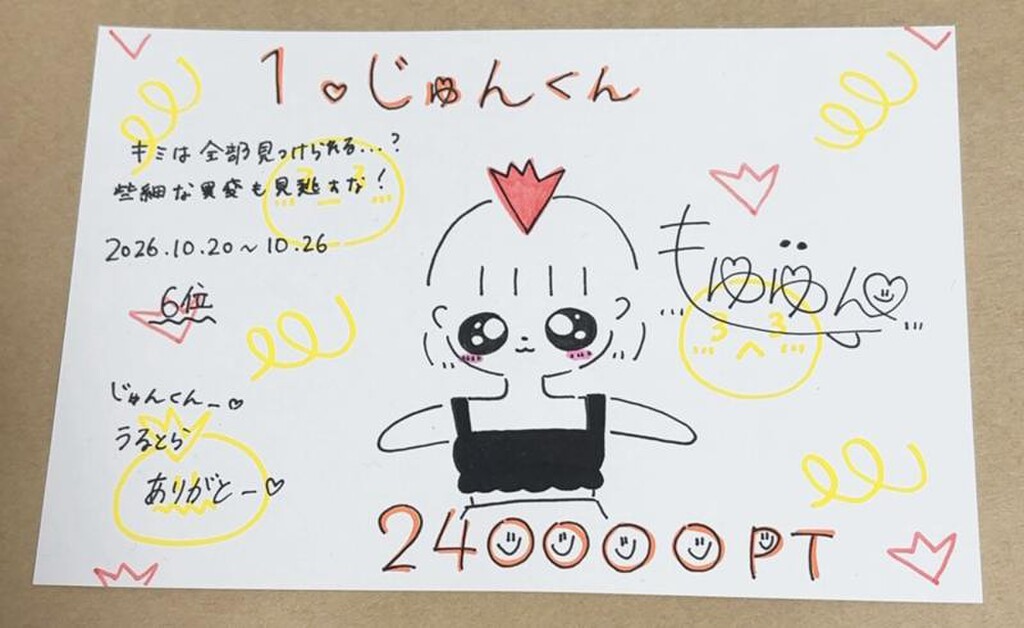 1.じゅんくん
キミは全部見つけられる...?
些細な異変も見逃すな!
2026.10.20~10.26
6位
もゅじゅん
じゅんくんー♡
うるとら
ありがとー♡
240000PT